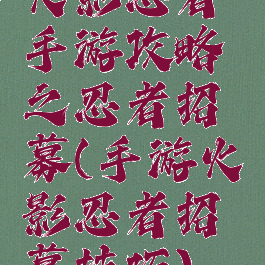 火影忍者
手游攻略
之忍者招
募(手游火
影忍者招
募技巧)